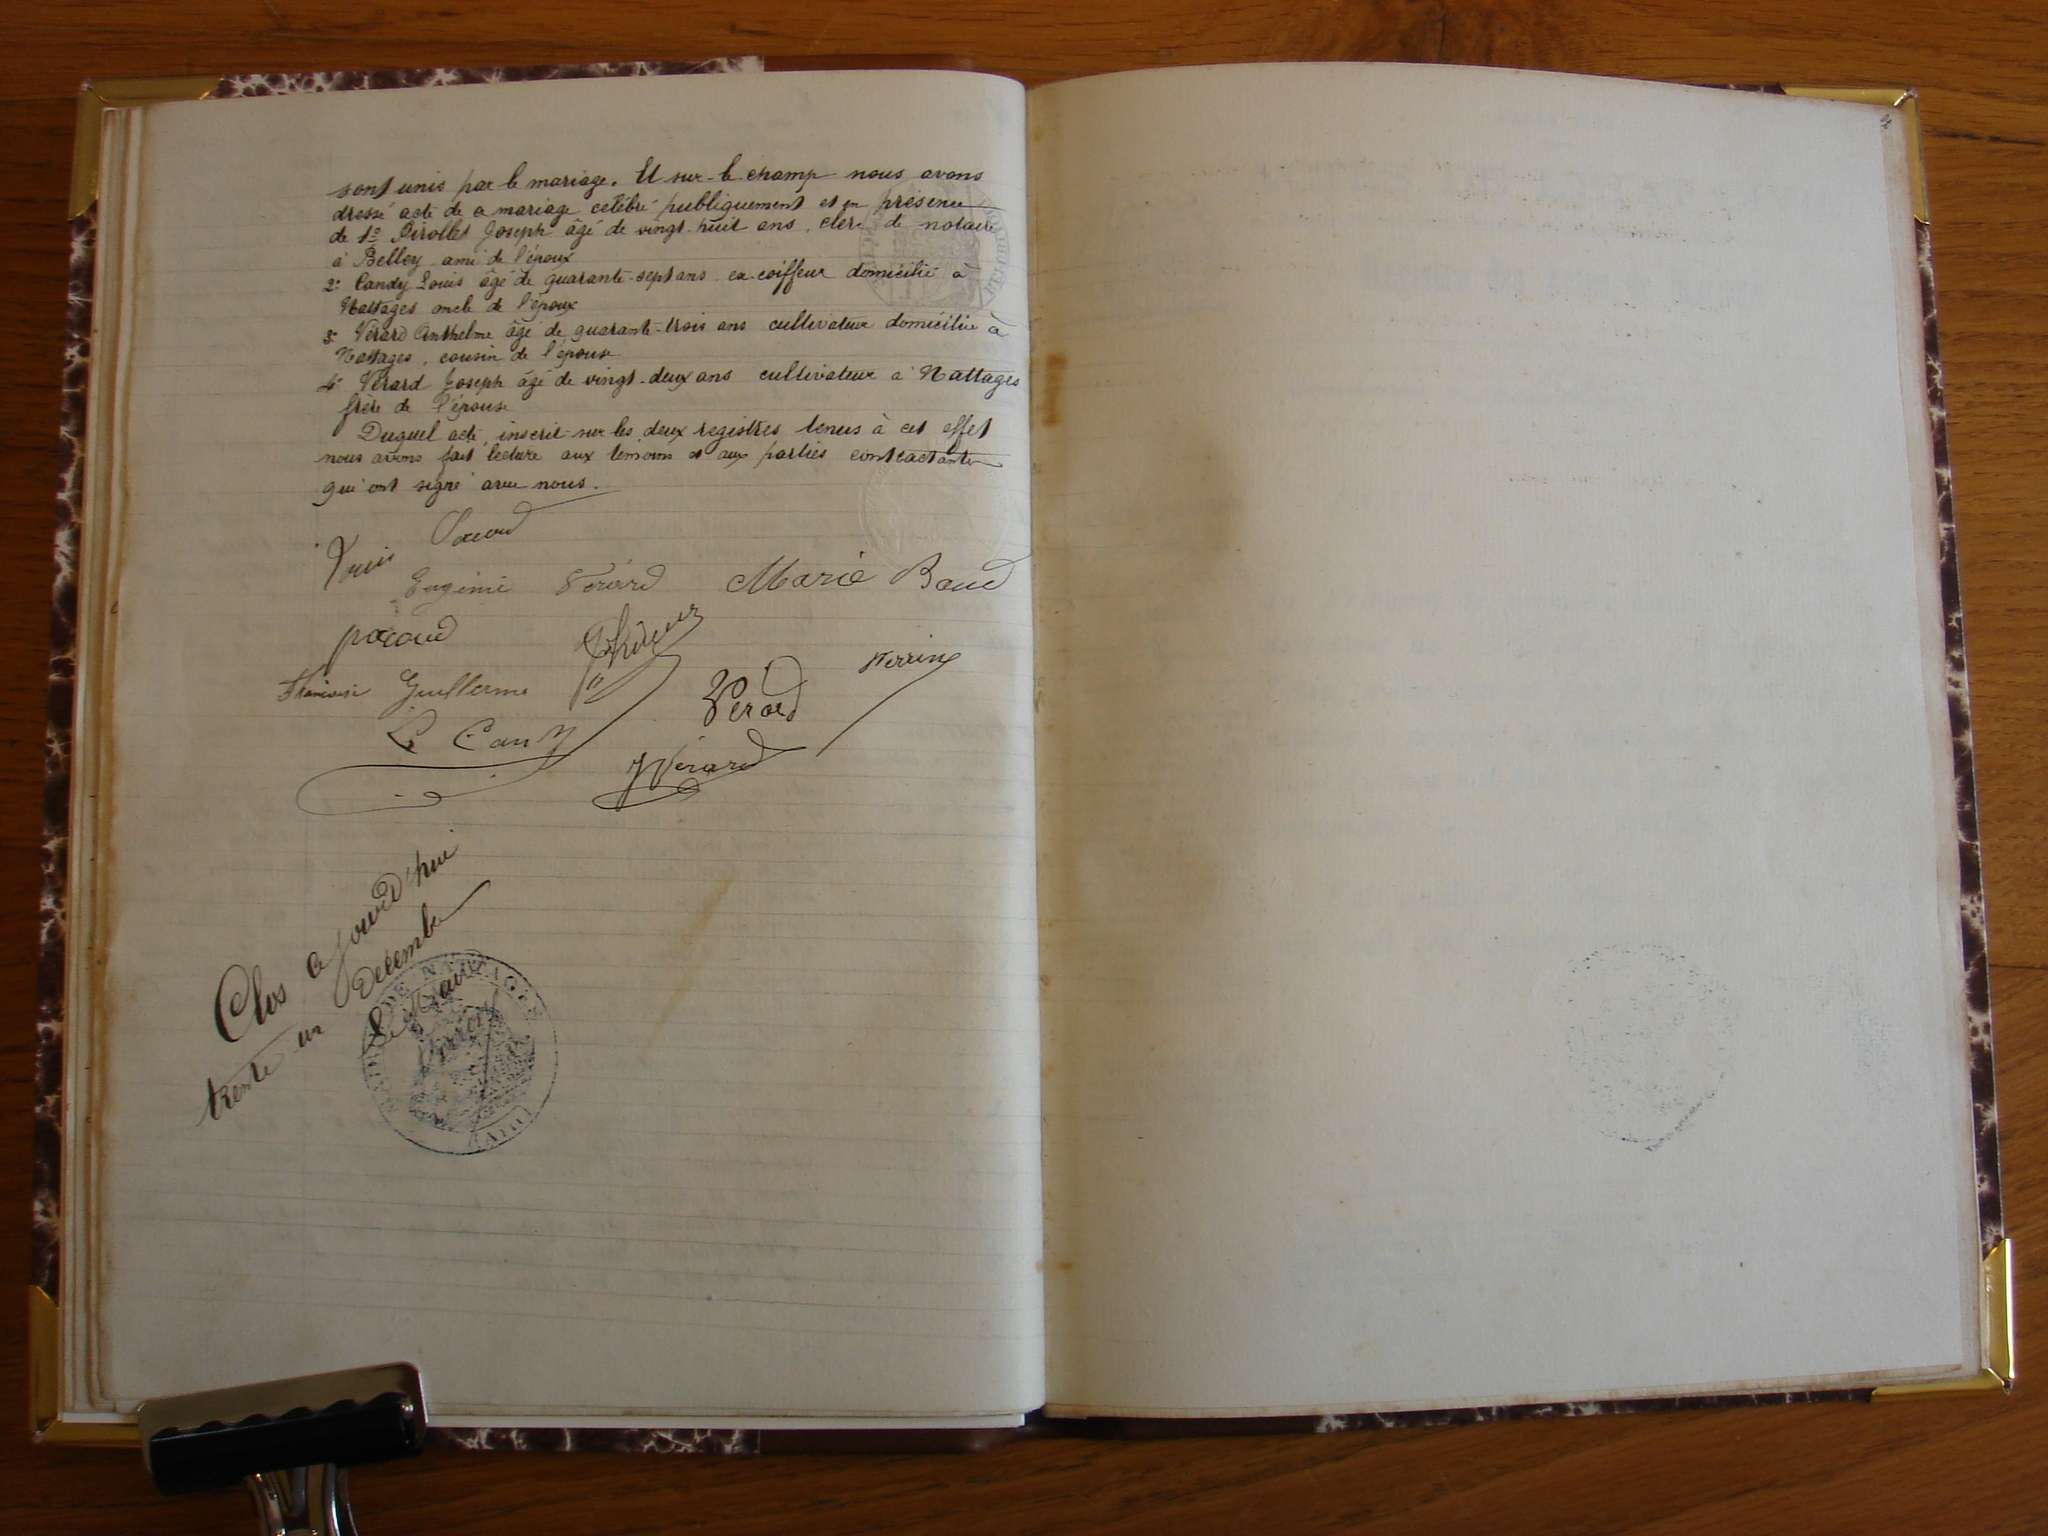 sont unis par le mariage. Et sur-le champ nous avons
dressé acte de ce mariage célébré publiquement et en présence
de 1º Pirollet Joseph âgé de vingt-huit ans, clerc de notaire
à Belley ami de l'époux
2º Candy Louis âgé de quarante-sept ans ex-coiffeur domicilié à
Nattages oncle de l'époux
3º Vérard Anthelme âgé de quarante-trois ans cultivateur domicilié à
Nattages, cousin de l'épouse
4º Vérard Joseph âgé de vingt-deux ans cultivateur à Nattages
frère de l'épouse
Duquel acte, inscrit sur les deux registres tenus à cet effet
nous avons fait lecture aux témoins et aux parties contractantes
qui ont signé avec nous.
Louis Pacoud
Eugénie Vérard Marie Baud
pacoud
Françoise Guillerme
Vérard
L. Candy
J Vérard
Clos ce jourd'hui
trente un Décembre
Le Maire
DE NATTAGES
(AIN)